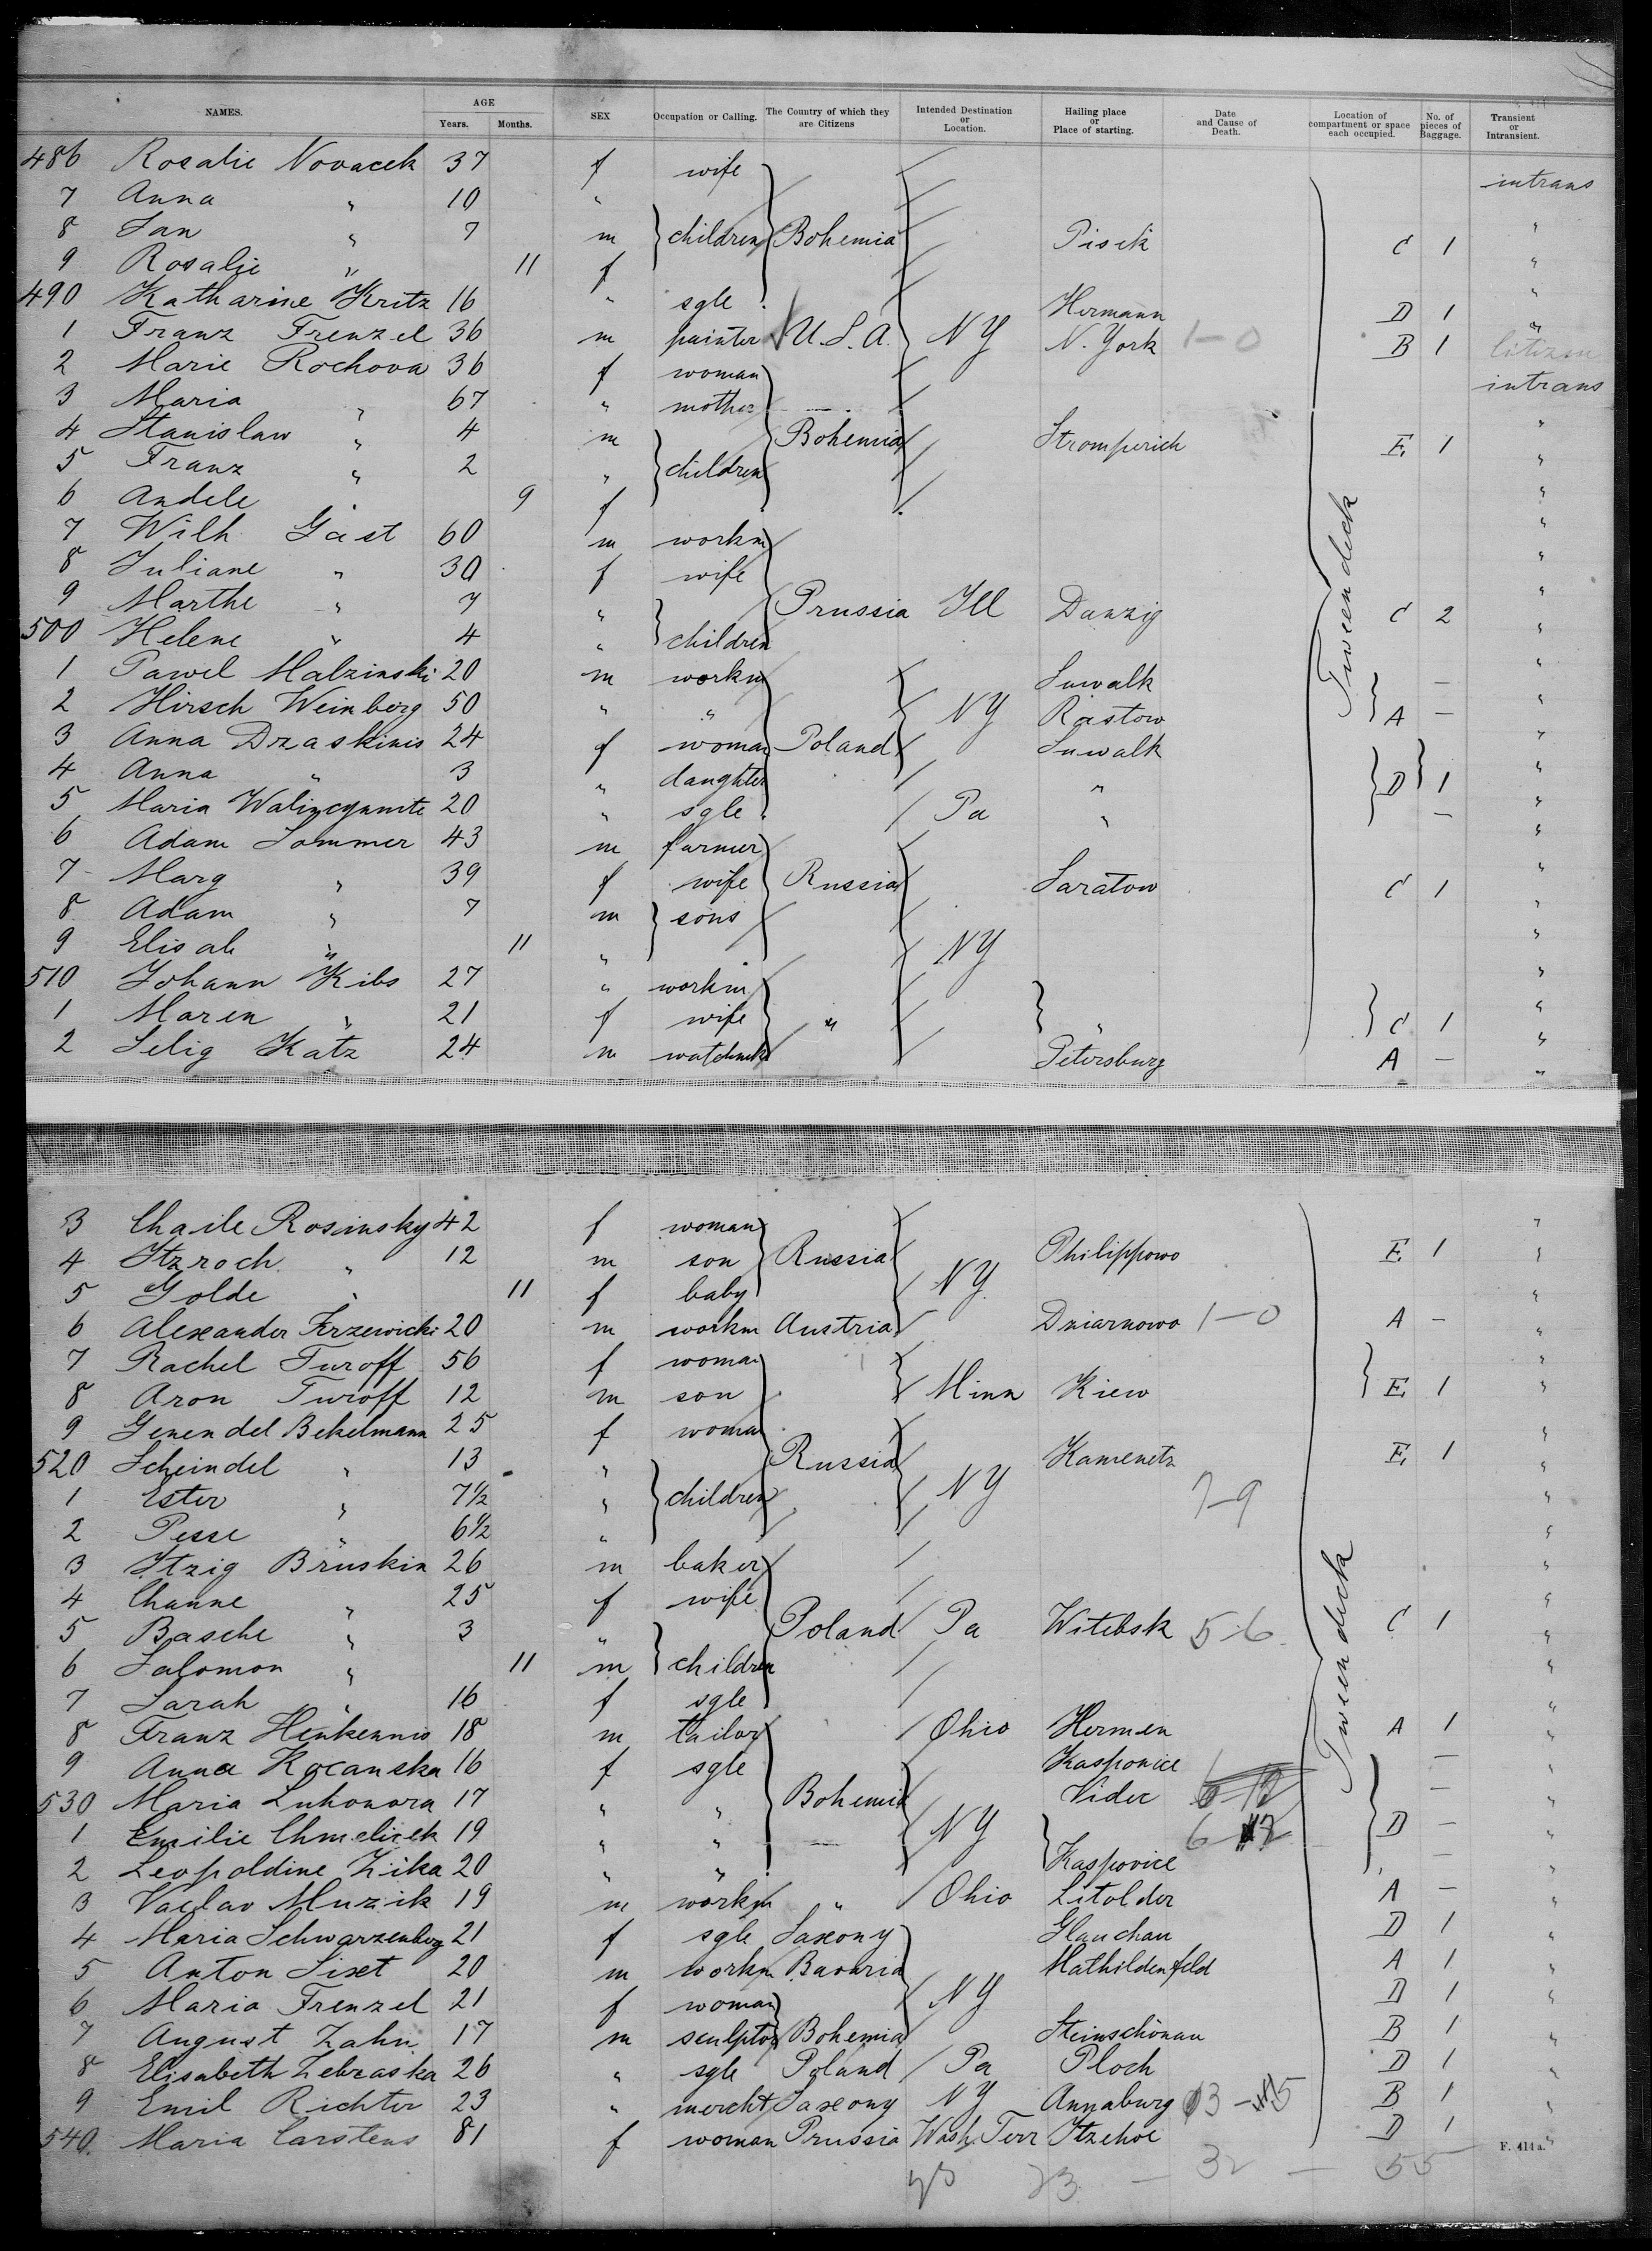 NAMES. AGE Years. Months. SEX Occupation or Calling. The Country of which they are Citizens Intended Destination or Location. Hailing place or Place of starting. Date and Cause of Death. Location of compartment or space each occupied. No. of pieces of Baggage. Transient or Intransient.
486 Rosalie Novacek 37 f wife intrans
7 Anna " 10 "
8 Jan " 7 m children Bohemia Pisek C 1 "
9 Rosalie " 11 f "
490 Katharine Kritz 16 " sgle Hermann D 1 "
1 Franz Frenzel 36 m painter U.S.A. NY N. York 1-0 B 1 citizen
2 Marie Rochova 36 f woman intrans
3 Maria " 67 " mother "
4 Stanislaw " 4 m Bohemia Stromperich E 1 "
5 Franz " 2 " children "
6 Andele " 9 f "
7 Wilh Gast 60 m workm "
8 Juliane " 30 f wife "
9 Marthe " 7 " Prussia Ill Danzig C 2 "
500 Helene " 4 " children "
1 Pawel Malzinski 20 m workm Suwalk - "
2 Hirsch Weinberg 50 " " NY Rastow A - "
3 Anna Draskinis 24 f woman Poland Suwalk "
4 Anna " 3 " daughter " D 1 "
5 Maria Walincynnite 20 " sgle Pa " - "
6 Adam Sommer 43 m farmer "
7 Marg " 39 f wife Russia Saratow C 1 "
8 Adam " 7 m sons "
9 Elisab " 11 " NY "
510 Johann Kibs 27 " workm "
1 Maren " 21 f wife " " C 1 "
2 Selig Katz 24 m watchmk Petersburg A - "
Tween deck
3 Chaile Rosinsky 42 f woman "
4 Itzroch " 12 m son Russia Philippowo E 1 "
5 Golde " 11 f baby NY "
6 Alexander Krzewicki 20 m workm Austria Dziarnowo 1-0 A - "
7 Rachel Turoff 56 f woman "
8 Aron Turoff 12 m son Minn Kiew E 1 "
9 Genendel Bekelmann 25 f woman "
520 Scheindel " 13 " Russia Kamenetz E 1 "
1 Ester " 7½ " children NY 7-9 "
2 Pesse " 6½ " "
3 Itzig Bruskin 26 m baker "
4 Channe " 25 f wife "
5 Basche " 3 " Poland Pa Witebsk 5-6 C 1 "
6 Salomon " 11 m children "
7 Sarah " 16 f sgle "
8 Franz Henkennis 18 m tailor Ohio Hermen A 1 "
9 Anna Kocanska 16 f sgle Kasponice - "
530 Maria Luhonora 17 " " Bohemia Vider - "
1 Emilie Chmelicek 19 " " NY D - "
2 Leopoldine Zika 20 " " Kaspovice - "
3 Vaclav Muzik 19 m workm " Ohio Litolder A - "
4 Maria Schwarzenberg 21 f sgle Saxony Glauchau D 1 "
5 Anton Sixt 20 m workm Bavaria Mathildenfeld A 1 "
6 Maria Frenzel 21 f woman NY D 1 "
7 August Zahn 17 m sculptor Bohemia Steinschönau B 1 "
8 Elisabeth Zebraska 26 " sgle Poland Pa Ploch D 1 "
9 Emil Richter 23 " mercht Saxony NY Annaburg B 1 "
540. Maria Carstens 81 f woman Prussia Wash. Terr Itzehoe D 1 "
Tween deck
F. 414a.
23 - 32 - 55